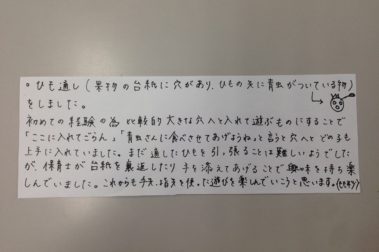 ○ ひも通し（果物の台紙に穴があり、ひもの先に青虫がついている物）
をしました。
初めての経験の為 比較的大きな穴へと入れて遊ぶものにすることで
「ここに入れてごらん」「青虫さんに食べさせてあげようね」と言うと穴へと どの子も
上手に入れていました。まだ通したひもを引っ張ることは難しいようでした
が、保育士が台紙を裏返したり 手を添えてあげることで興味を持ち楽
しんでいました。これからも手先、指先を使った遊びを楽しんでいこうと思います。